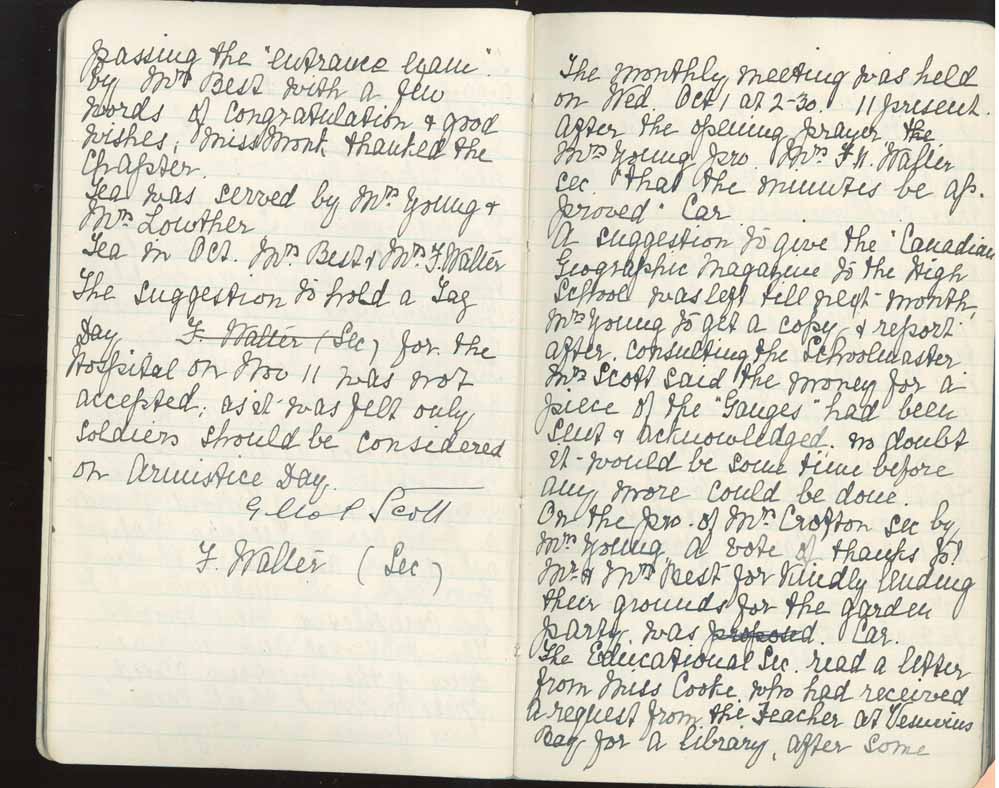 passing the "entrance exam".
by Mrs Best with a few
words of congratulation & good
wishes, Miss Mont. thanked the
Chapter.
Tea was served by Mrs Young &
Mrs Lowther
Tea in Oct. Mrs Best & Mrs F. Walter
The suggestion to hold a Tag
Day F. Walter (Sec) for the
Hospital on Nov 11 was not
accepted; as it was felt only
soldiers should be considered
on Armistice Day.
Scott
F. Walter (Sec)
The monthly meeting was held
on Wed. Oct 1 at 2-30. 11 present.
After the opening prayer the
Mrs Young pro. Mrs F. W. Walter
sec. "that the minutes be ap-
proved" Car
A suggestion to give the "Canadian
Geographic Magazine to the High
School was left till next month,
Mrs Young to get a copy, & report
after, consulting the Schoolmaster.
Mrs Scott said the money for a
piece of the "Ganges" had been
sent & acknowledged. no doubt
it would be some time before
any more could be done.
On the pro. of Mrs Crofton sec by
Mrs Young a vote of thanks to
Mr & Mrs Best for kindly lending
their grounds for the garden
party. was proposed. Car.
The Educational Sec. read a letter
from Miss Cooke who had received
a request from the Teacher at Vesuvius
Bay for a library, after some